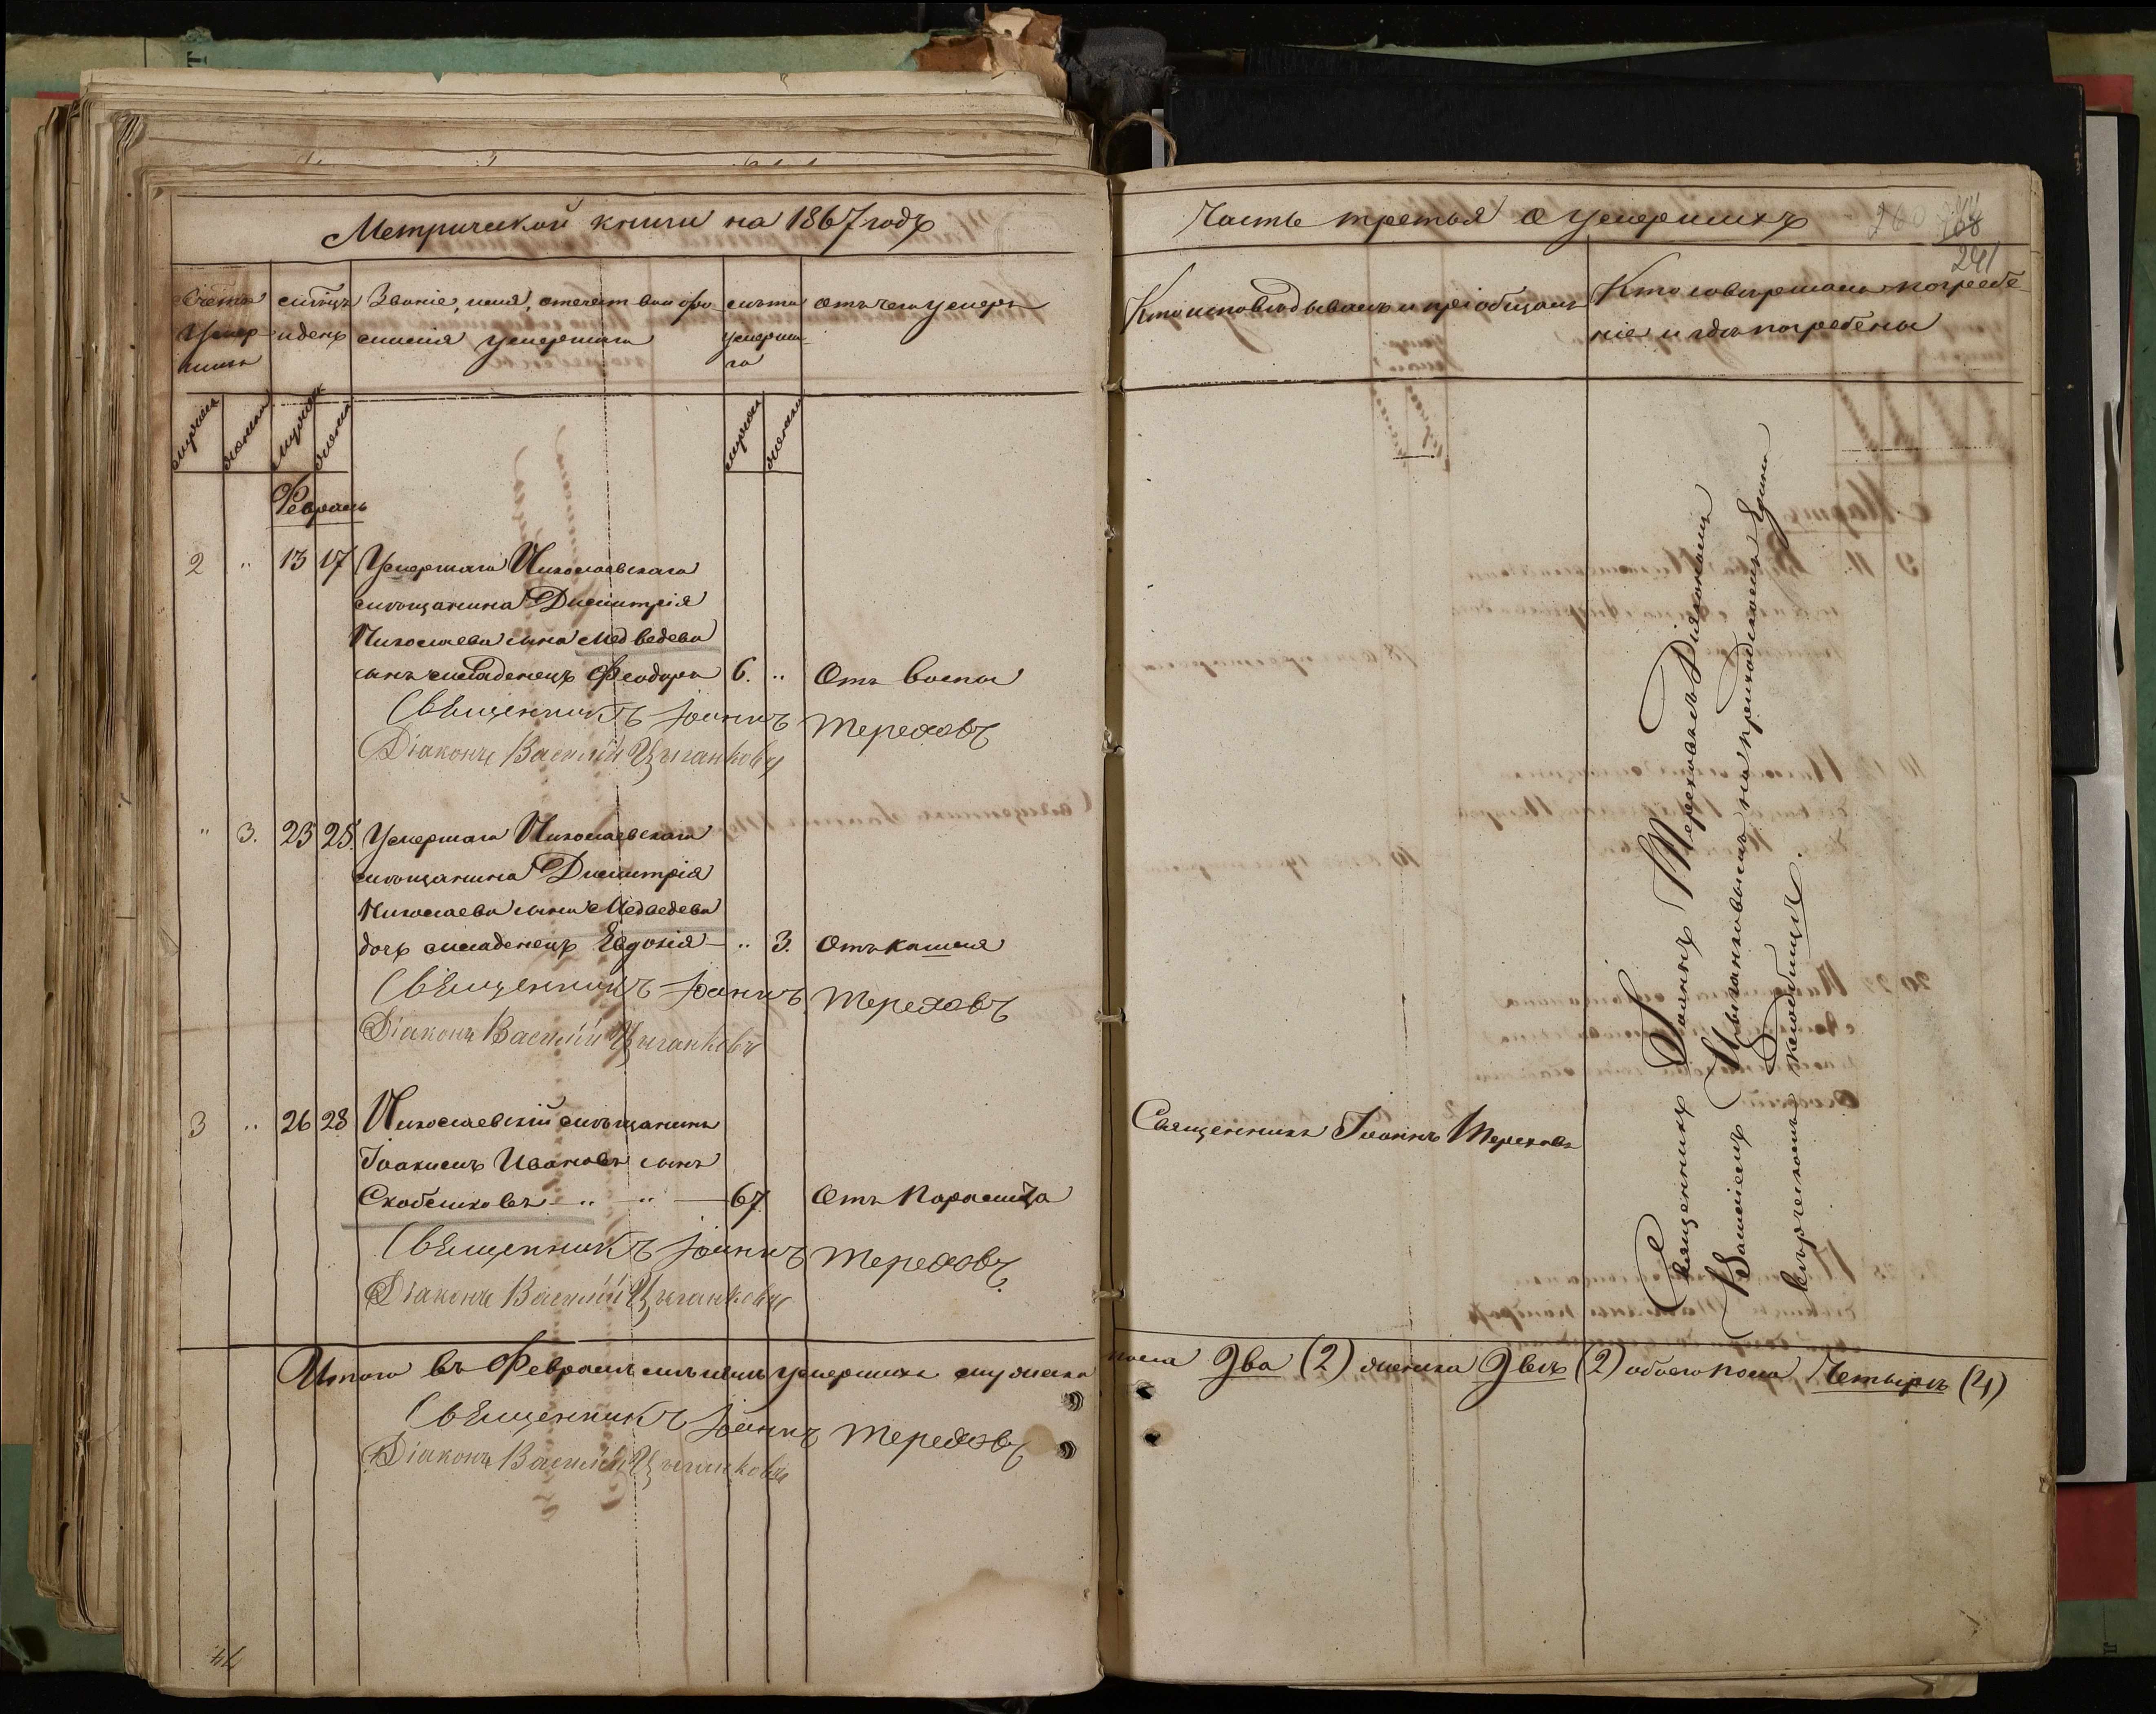 Метрической книги на 1867 годъ
Счетъ умер-шихъ
мѣсяцъ и день
Званіе, имя, отечество и фа-
милія умершаго
лѣта
умерша-
го
отъ чего умеръ
мужеска
женска
мужеска
женска
Февраль
2 " 13 17 Умершаго Николаевскаго
мѣщанина Димитрія
Николаева сына Медведева
сынъ младенецъ Феодоръ 6. " Отъ воспы
Священникъ Іоаннъ Тереховъ
Діаконъ Василій Цыганковъ
" 3. 23 25. Умершаго Николаевскаго
мѣщанина Димитрія
Николаева сына Медведева
дочь младенецъ Евдокія — " 3. Отъ кашля
Священникъ Іоаннъ Тереховъ
Діаконъ Василій Цыганковъ
3 " 26 28 Николаевскій мѣщанинъ
Іоакимъ Ивановъ сынъ
Скобелковъ — " — " — 67 Отъ Паралича
Священникъ Іоаннъ Тереховъ
Діаконъ Василій Цыганковъ
Итого въ Февралѣ мѣсяцѣ умершихъ мужеска
Священникъ Іоаннъ Тереховъ
Діаконъ Василій Цыганковъ
Часть третья о умершихъ
260
268
241
Кто исповѣдывалъ и пріобщалъ
Кто совершалъ погребе-
ніе и гдѣ погребены
Священникъ Іоаннъ Тереховъ
Священникъ Іоаннъ Тереховъ съ Діакономъ
Василіемъ Цыганковымъ на приходскомъ Едино
вѣрческомъ кладбищѣ.
пола Два (2) женска Двѣ (2) обоего пола Четыре (4)